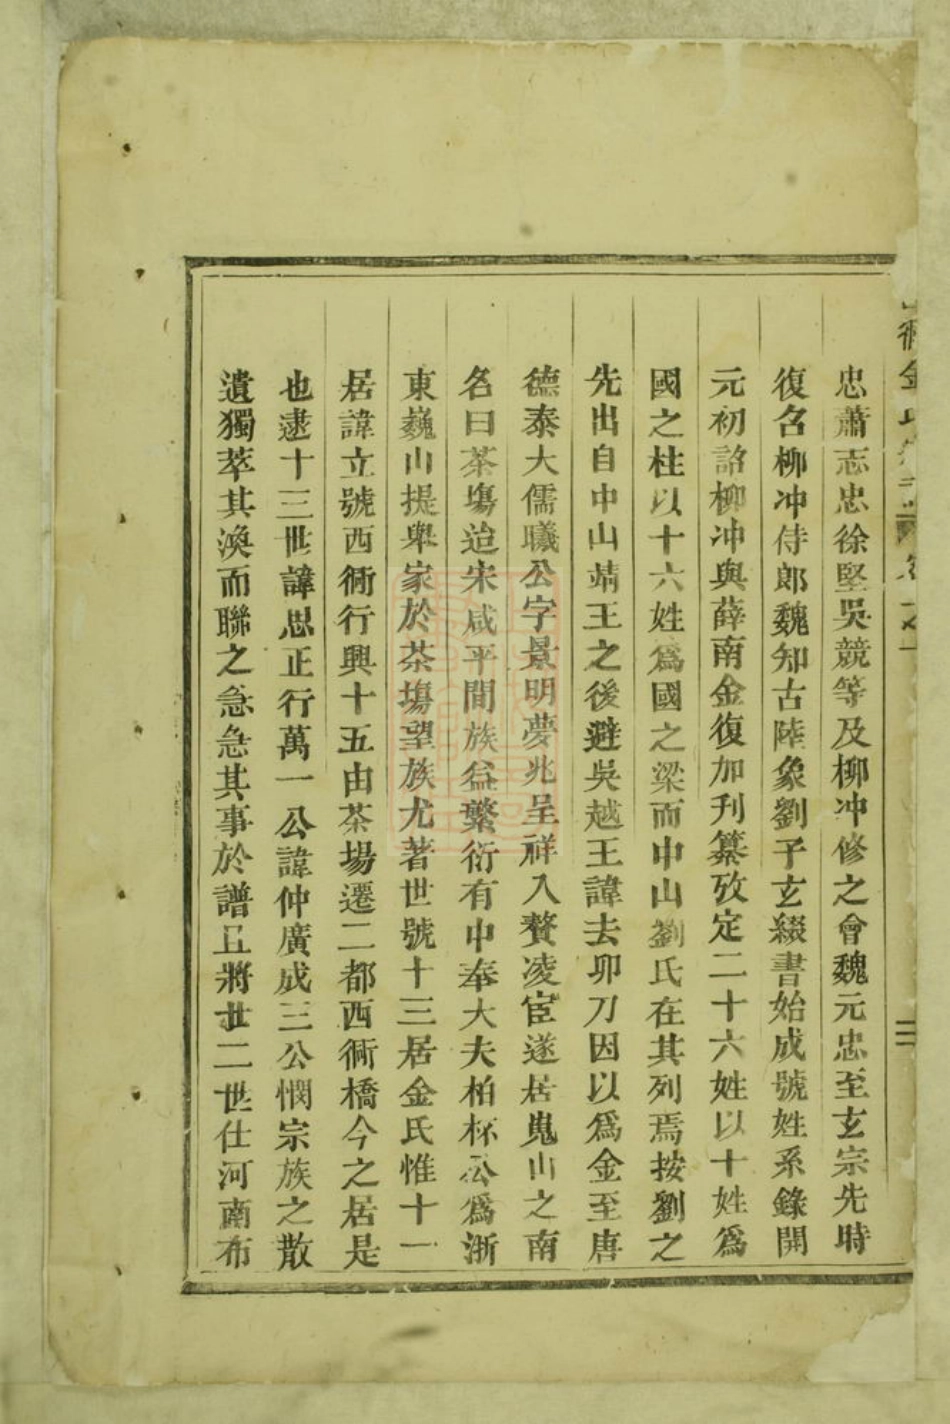 忠蕭志忠徐堅吳競等及柳冲修之會魏元忠至玄宗先時
復名柳冲侍郎魏知古陸象劉子玄綴書始成號姓系錄開
元初詔柳冲與薛南金復加刋纂攷定二十六姓以十姓爲
國之柱以十六姓爲國之梁而中山劉氏在其列焉按劉之
先出自中山靖王之後避吳越王諱去卯刀因以爲金至唐
德泰大儒曦公字景明夢兆呈祥入贅凌宦遂居嵬山之南
名曰茶塲迨宋咸平間族益繁衍有中奉大夫柏杯公爲浙
東巍山提舉家於茶塲望族尤著世號十三居金氏惟十一
居諱立號西衕行興十五由茶場遷二都西衕橋今之居是
也逮十三世諱思正行萬一公諱仲廣成三公憫宗族之散
遺獨萃其渙而聯之急急其事於譜且將廿二世仕河南布
金氏
三